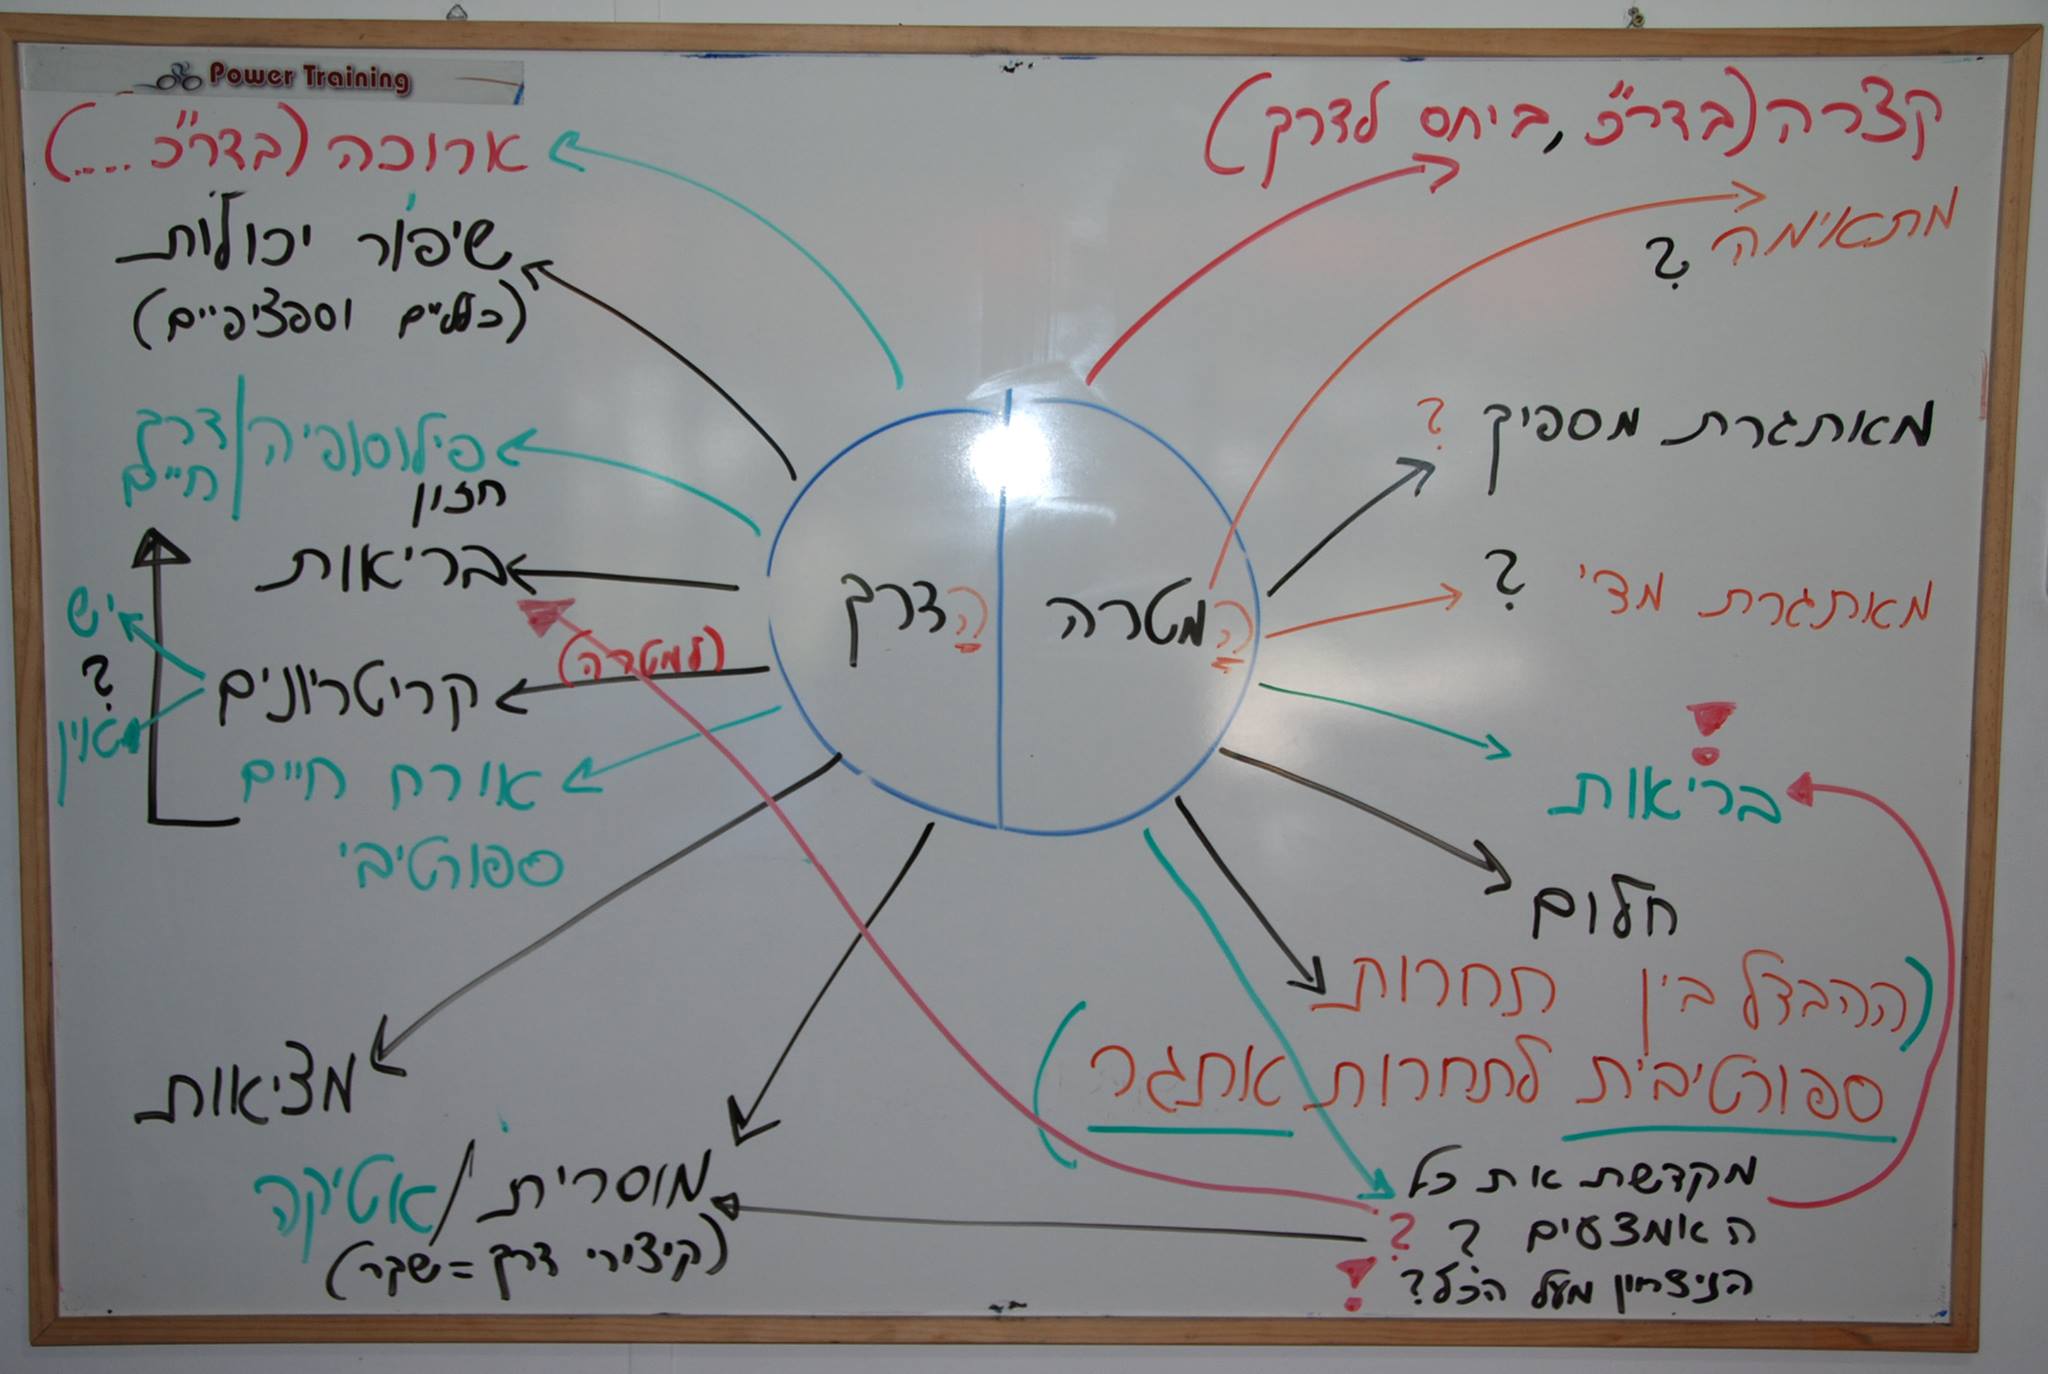 Power Training
קצרה (בדר"כ, ביחס לדרך)
מתאימה ?
מאתגרת מספיק ?
מאתגרת מדי ?
!
בריאות
חלום
(ההבדל בין תחרות
ספורטיבית לתחרות אתגר)
מקדשת את כל
האמצעים ? ?
הניצחון מעל הכל? !
המטרה
הדרך
ארוכה (בדר"כ ....)
שיפור יכולות
(כלליים וספציפיים)
פילוסופיה | דרך
חיים
חזון
בריאות
(למטרה)
קריטריונים
יש
?
מאוין
אורח חיים
ספורטיבי
מציאות
מוסרית / אטיקה
(קיצורי דרך = שקר)